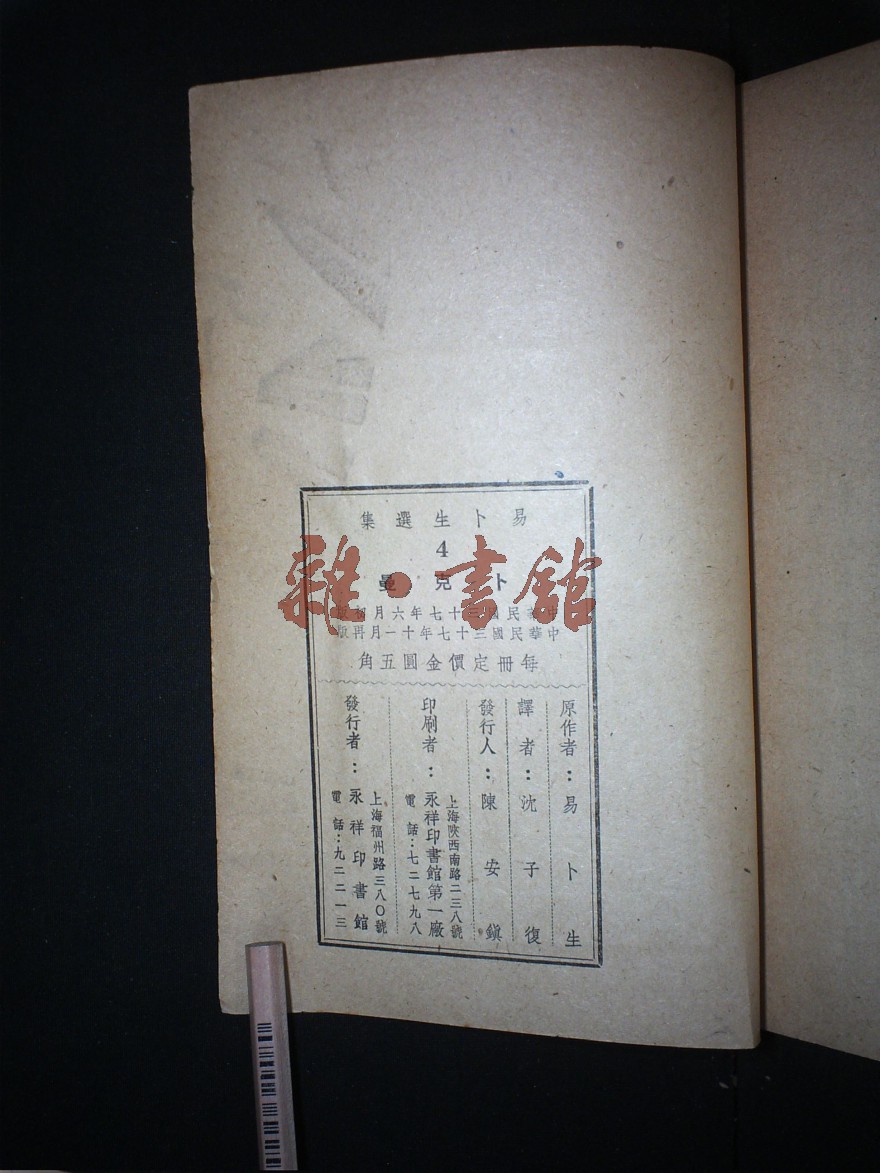 易卜生選集
4
卜克曼
中華民國三十七年六月初版
中華民國三十七年十一月再版
每冊定價金圓五角
原作者：易卜生
譯者：沈子復
發行人：陳安鎭
印刷者：永祥印書館第一廠
上海陝西南路二三八號
電話：七二七九八
發行者：永祥印書館
上海福州路三八〇號
電話：九二二一三
雜·書館